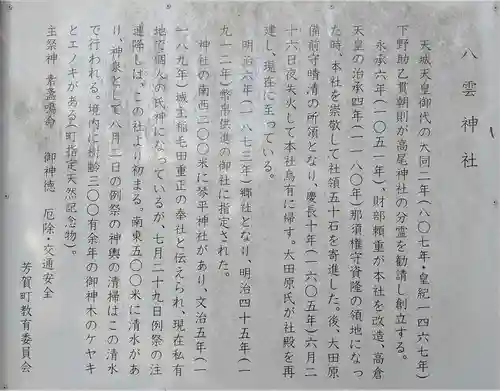 八雲神社
天城天皇御代の大同二年(八〇七年・皇紀一四六七年)
下野助乙貫朝則が高尾神社の分霊を勧請し創立する。
永承六年(一〇五一年)、財部頼重が本社を改造、高倉
天皇の治承四年(一一八〇年)那須權守資隆の領地になっ
た時、本社を崇敬して社領五十石を寄進した。後、大田原
備前守晴清の所領となり、慶長十年(一六〇五年)六月二
十六日夜失火して本社烏有に帰す。大田原氏が社殿を再
建し、現在に至っている。
明治六年(一八七三年)郷社となり、明治四十五年(一
九一二年)幣帛供進の御社に指定された。
神社の南西二〇〇米に琴平神社があり、文治五年(一
一八九年)城主稲毛田重正の奉社と伝えられ、現在私有
地で個人の氏神になっているが、七月二十九日例祭の注
連降しは、この社より初まる。南東五〇〇米に清水があ
り、神泉として八月一日の例祭の神輿の清掃はこの清水
で行われる。境内に樹齢三〇〇有余年の御神木のケヤキ
とエノキがある(町指定天然記念物)。
主祭神 素盞鳴命 御神徳 厄除・交通安全
芳賀町教育委員会